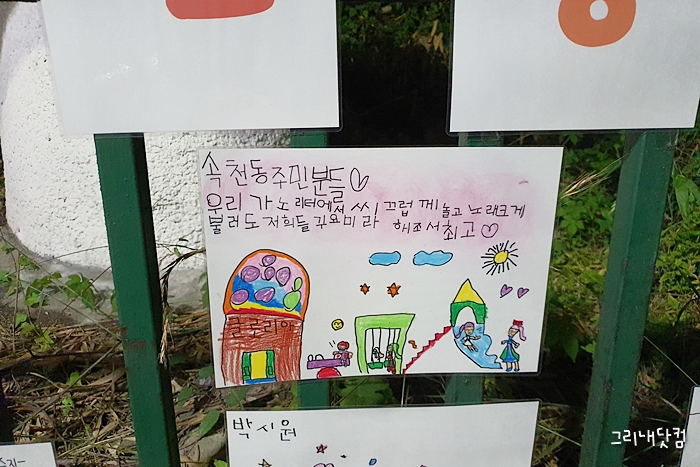 속천동주민분들♡
우리 가 노리터에서 씨끄럽 께 놀고 노래크게
불러도 저희들 귀요미 라 해조서 최고♡
글로리아
박시원
그리내닷컴